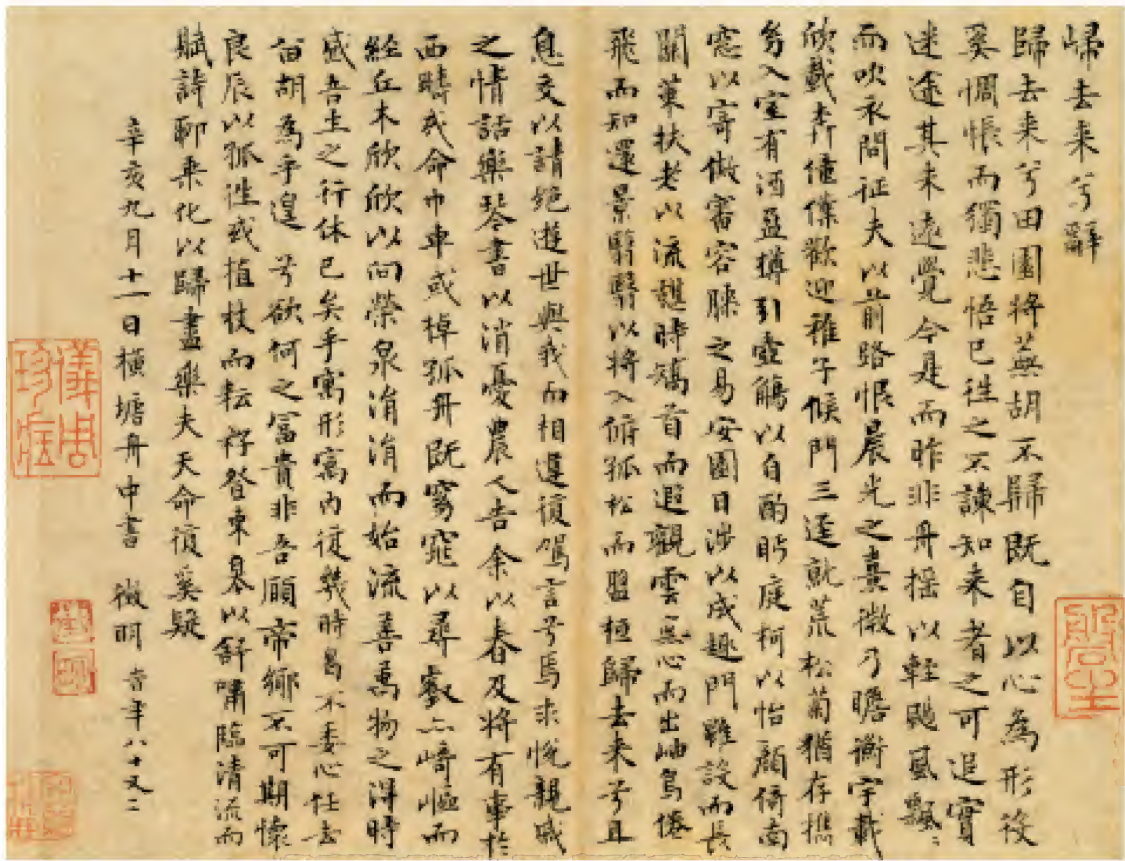 歸去来兮辭
歸去来兮田園将蕪胡不歸既自以心為形役
奚惆悵而獨悲悟已往之不諫知来者之可追實
迷途其未遠覺今是而昨非舟揺以輕颺風飄飄
而吹衣問征夫以前路恨晨光之熹微乃瞻衡宇載
欣載奔僮僕歡迎稚子候門三逕就荒松菊猶存携
幼入室有酒盈罇引壺觴以自酌眄庭柯以怡顔倚南
窓以寄傲審容膝之易安園日涉以成趣門雖設而長
關策扶老以流憩時矯首而遐觀雲無心而出岫鳥倦
飛而知還景翳翳以将入撫孤松而盤桓歸去来兮且
息交以請絶遊世與我而相違復駕言兮焉求悦親戚
之情話樂琴書以消憂農人告余以春及将有事於
西疇或命巾車或棹孤舟既窈窕以尋壑亦崎嶇而
經丘木欣欣以向榮泉涓涓而始流善萬物之得時
感吾生之行休已矣乎寓形寓内復幾時曷不委心任去
留胡為乎遑遑兮欲何之富貴非吾願帝鄉不可期懷
良辰以孤往或植杖而耘耔登東皋以舒嘯臨清流而
賦詩聊乘化以歸盡樂夫天命復奚疑
辛亥九月十一日横塘舟中書 徵明 時年八十又二
儀周珍藏